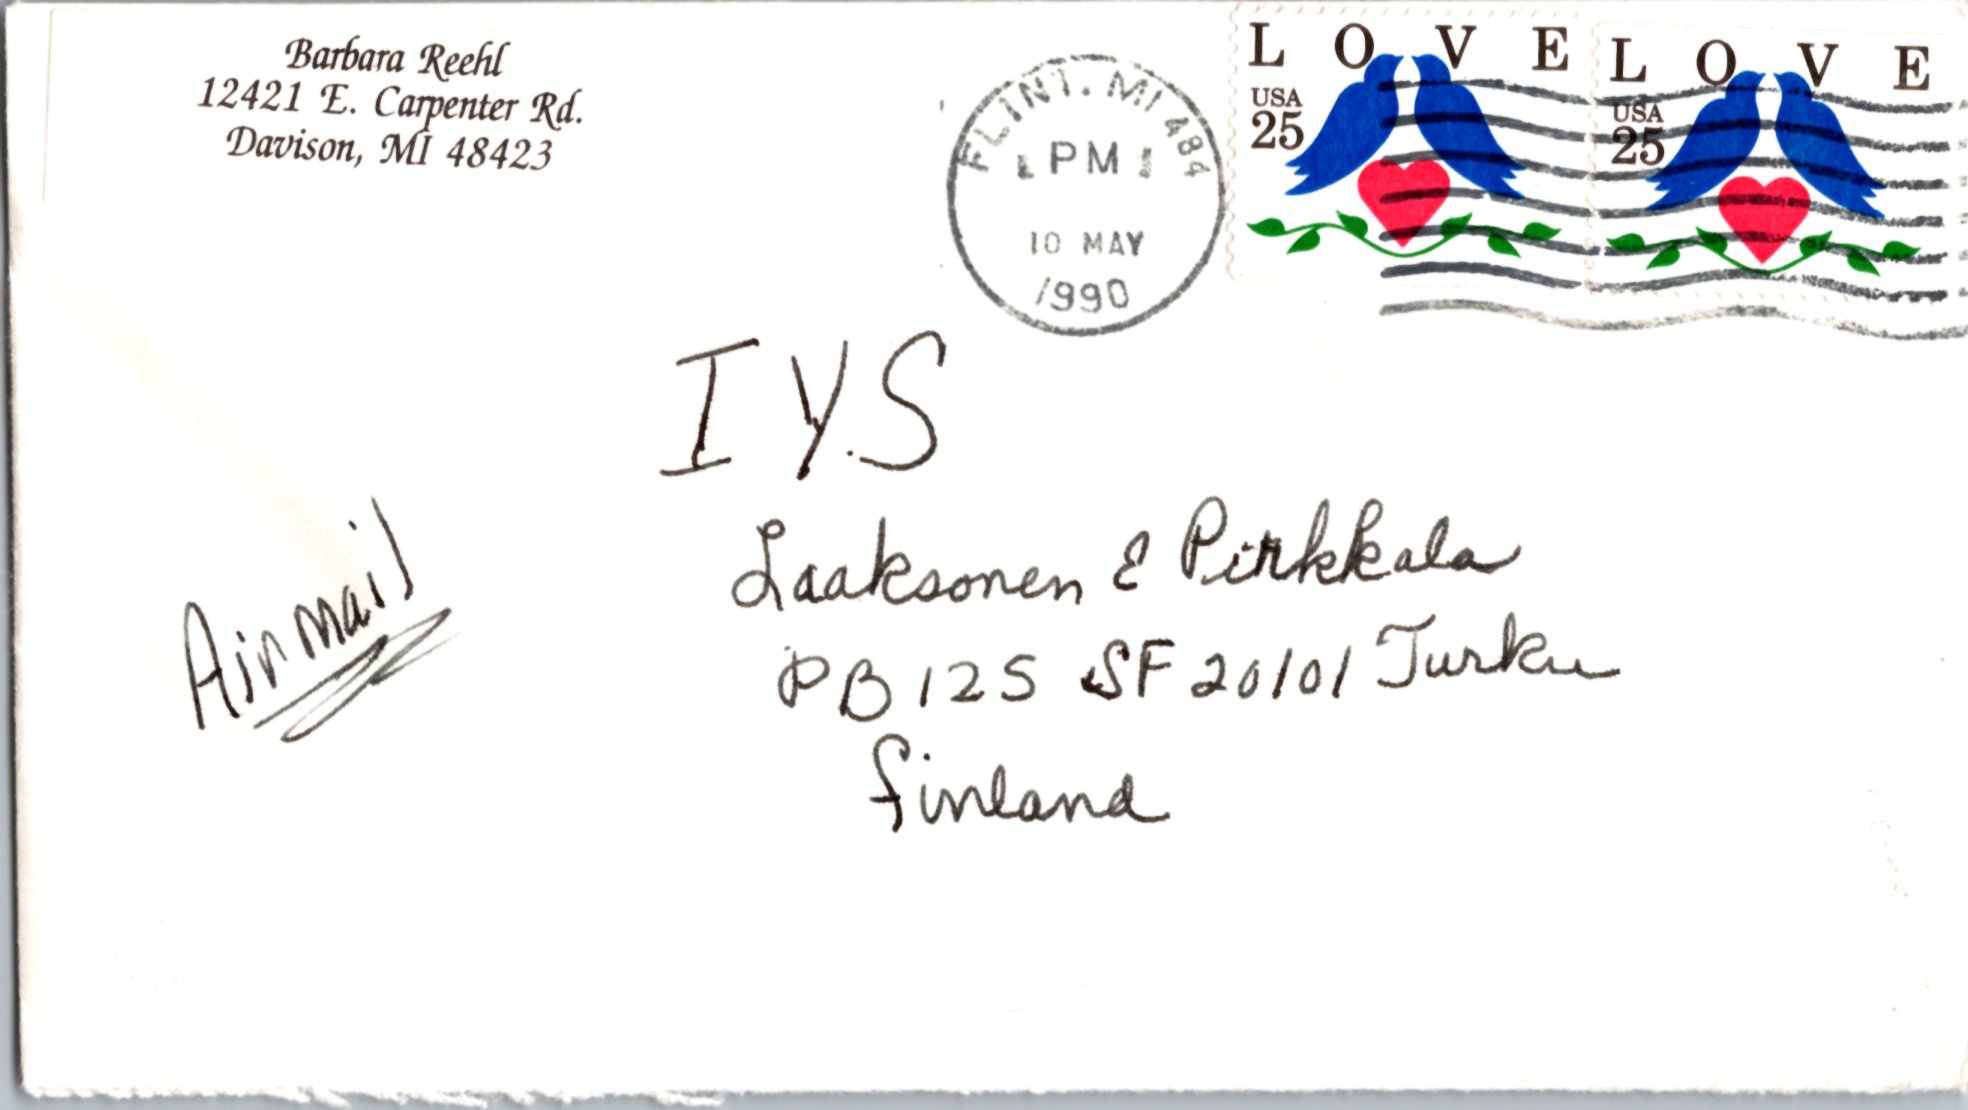 Barbara Reehl
12421 E. Carpenter Rd.
Davison, MI 48423
FLINT, MI 484
PM
10 MAY
1990
LOVE
USA
25
LOVE
USA
25
I.Y.S
Laaksonen & Pirkkala
PB 125 SF 20101 Turku
Finland
Airmail